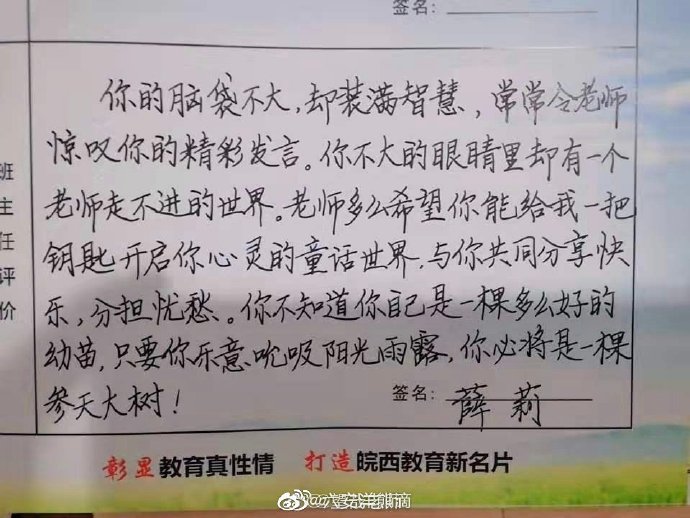 签名：
你的脑袋不大，却装满智慧，常常令老师
惊叹你的精彩发言。你不大的眼睛里却有一个
老师走不进的世界。老师多么希望你能给我一把
钥匙开启你心灵的童话世界，与你共同分享快
乐，分担忧愁。你不知道你自己是一棵多么好的
幼苗，只要你乐意吮吸阳光雨露，你必将是一棵
参天大树！
签名：薛莉
班主任评价
彰显教育真性情 打造皖西教育新名片